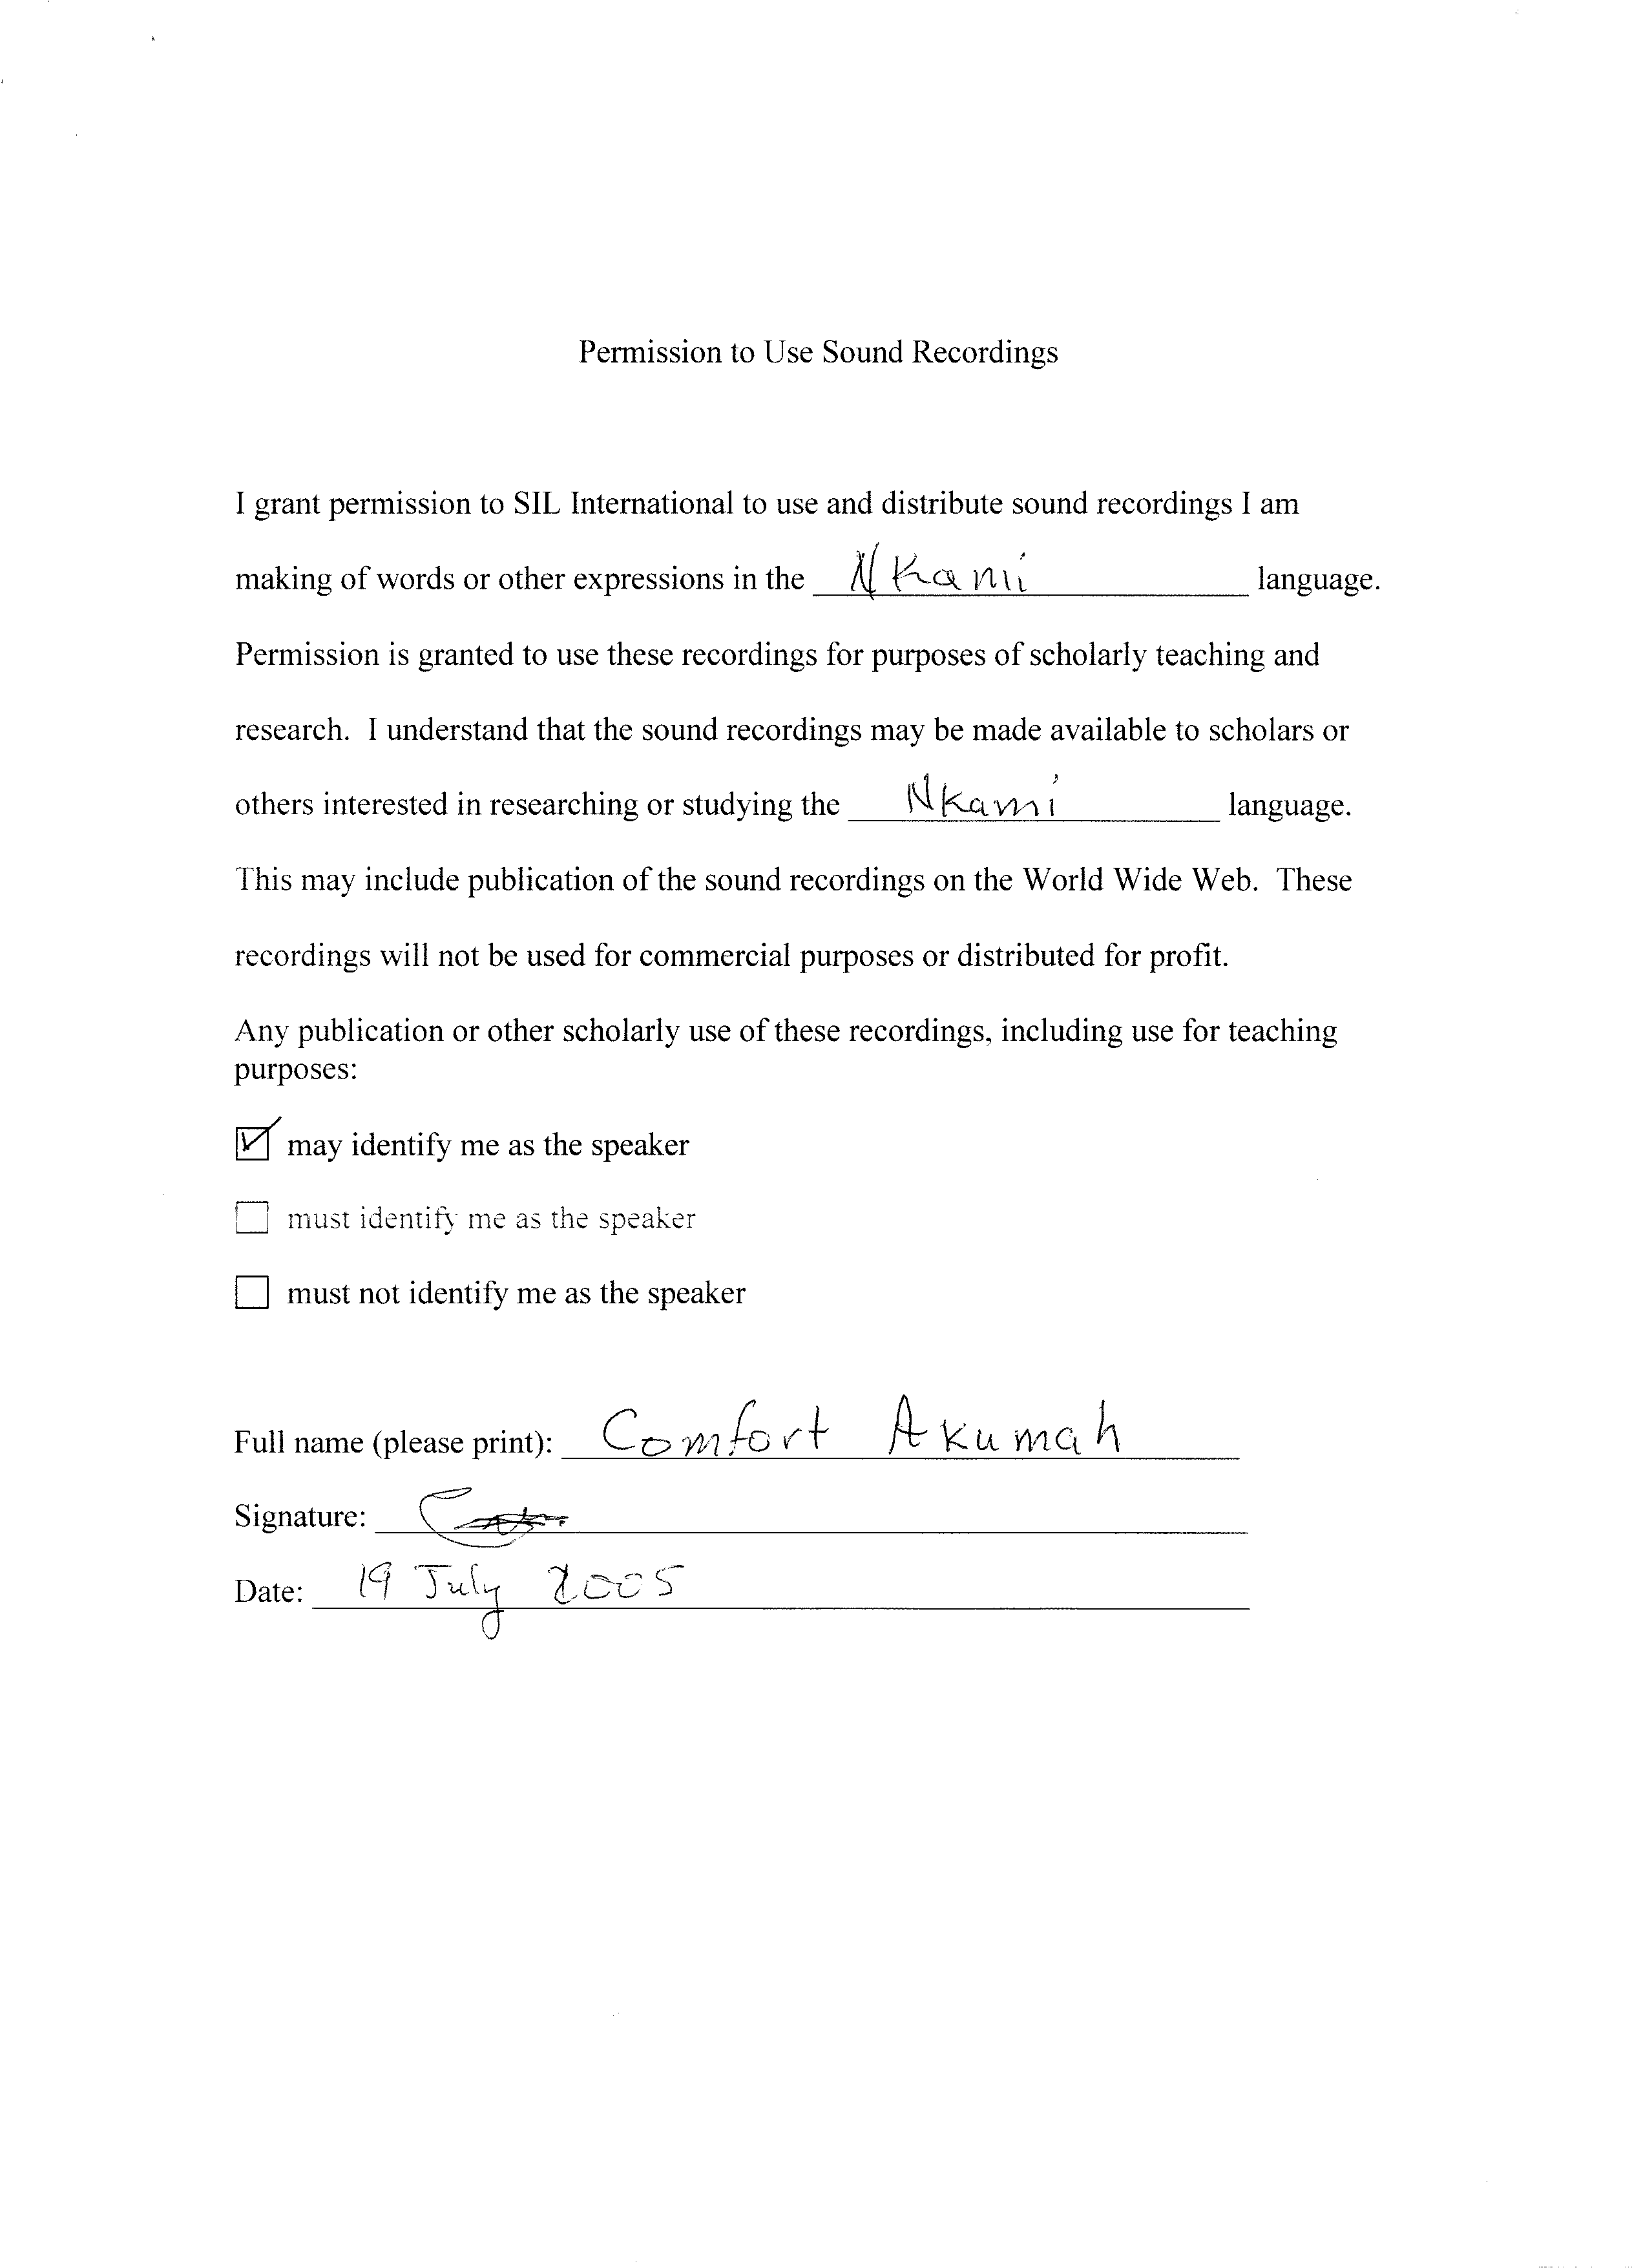 Permission to Use Sound Recordings
I grant permission to SIL International to use and distribute sound recordings I am
making of words or other expressions in the Nkami language.
Permission is granted to use these recordings for purposes of scholarly teaching and
research. I understand that the sound recordings may be made available to scholars or
others interested in researching or studying the Nkami language.
This may include publication of the sound recordings on the World Wide Web. These
recordings will not be used for commercial purposes or distributed for profit.
Any publication or other scholarly use of these recordings, including use for teaching
purposes:
☑ may identify me as the speaker
☐ must identify me as the speaker
☐ must not identify me as the speaker
Full name (please print): Comfort Akumah
Signature:
Date: 19 July 2005